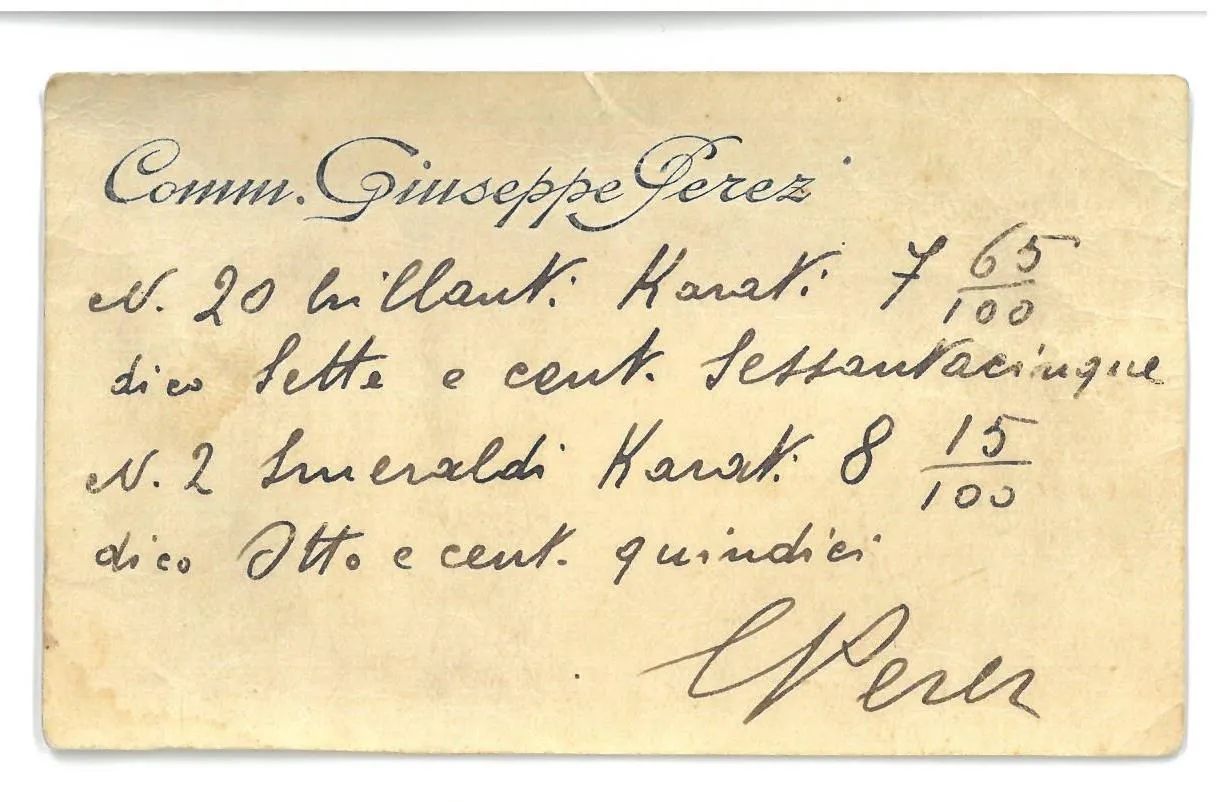 Comm. Giuseppe Perez
N. 20 brillanti Karati 7 65/100
dico Sette e cent. Sessantacinque
N. 2 Smeraldi Karati 8 15/100
dico Otto e cent. quindici
GPerez